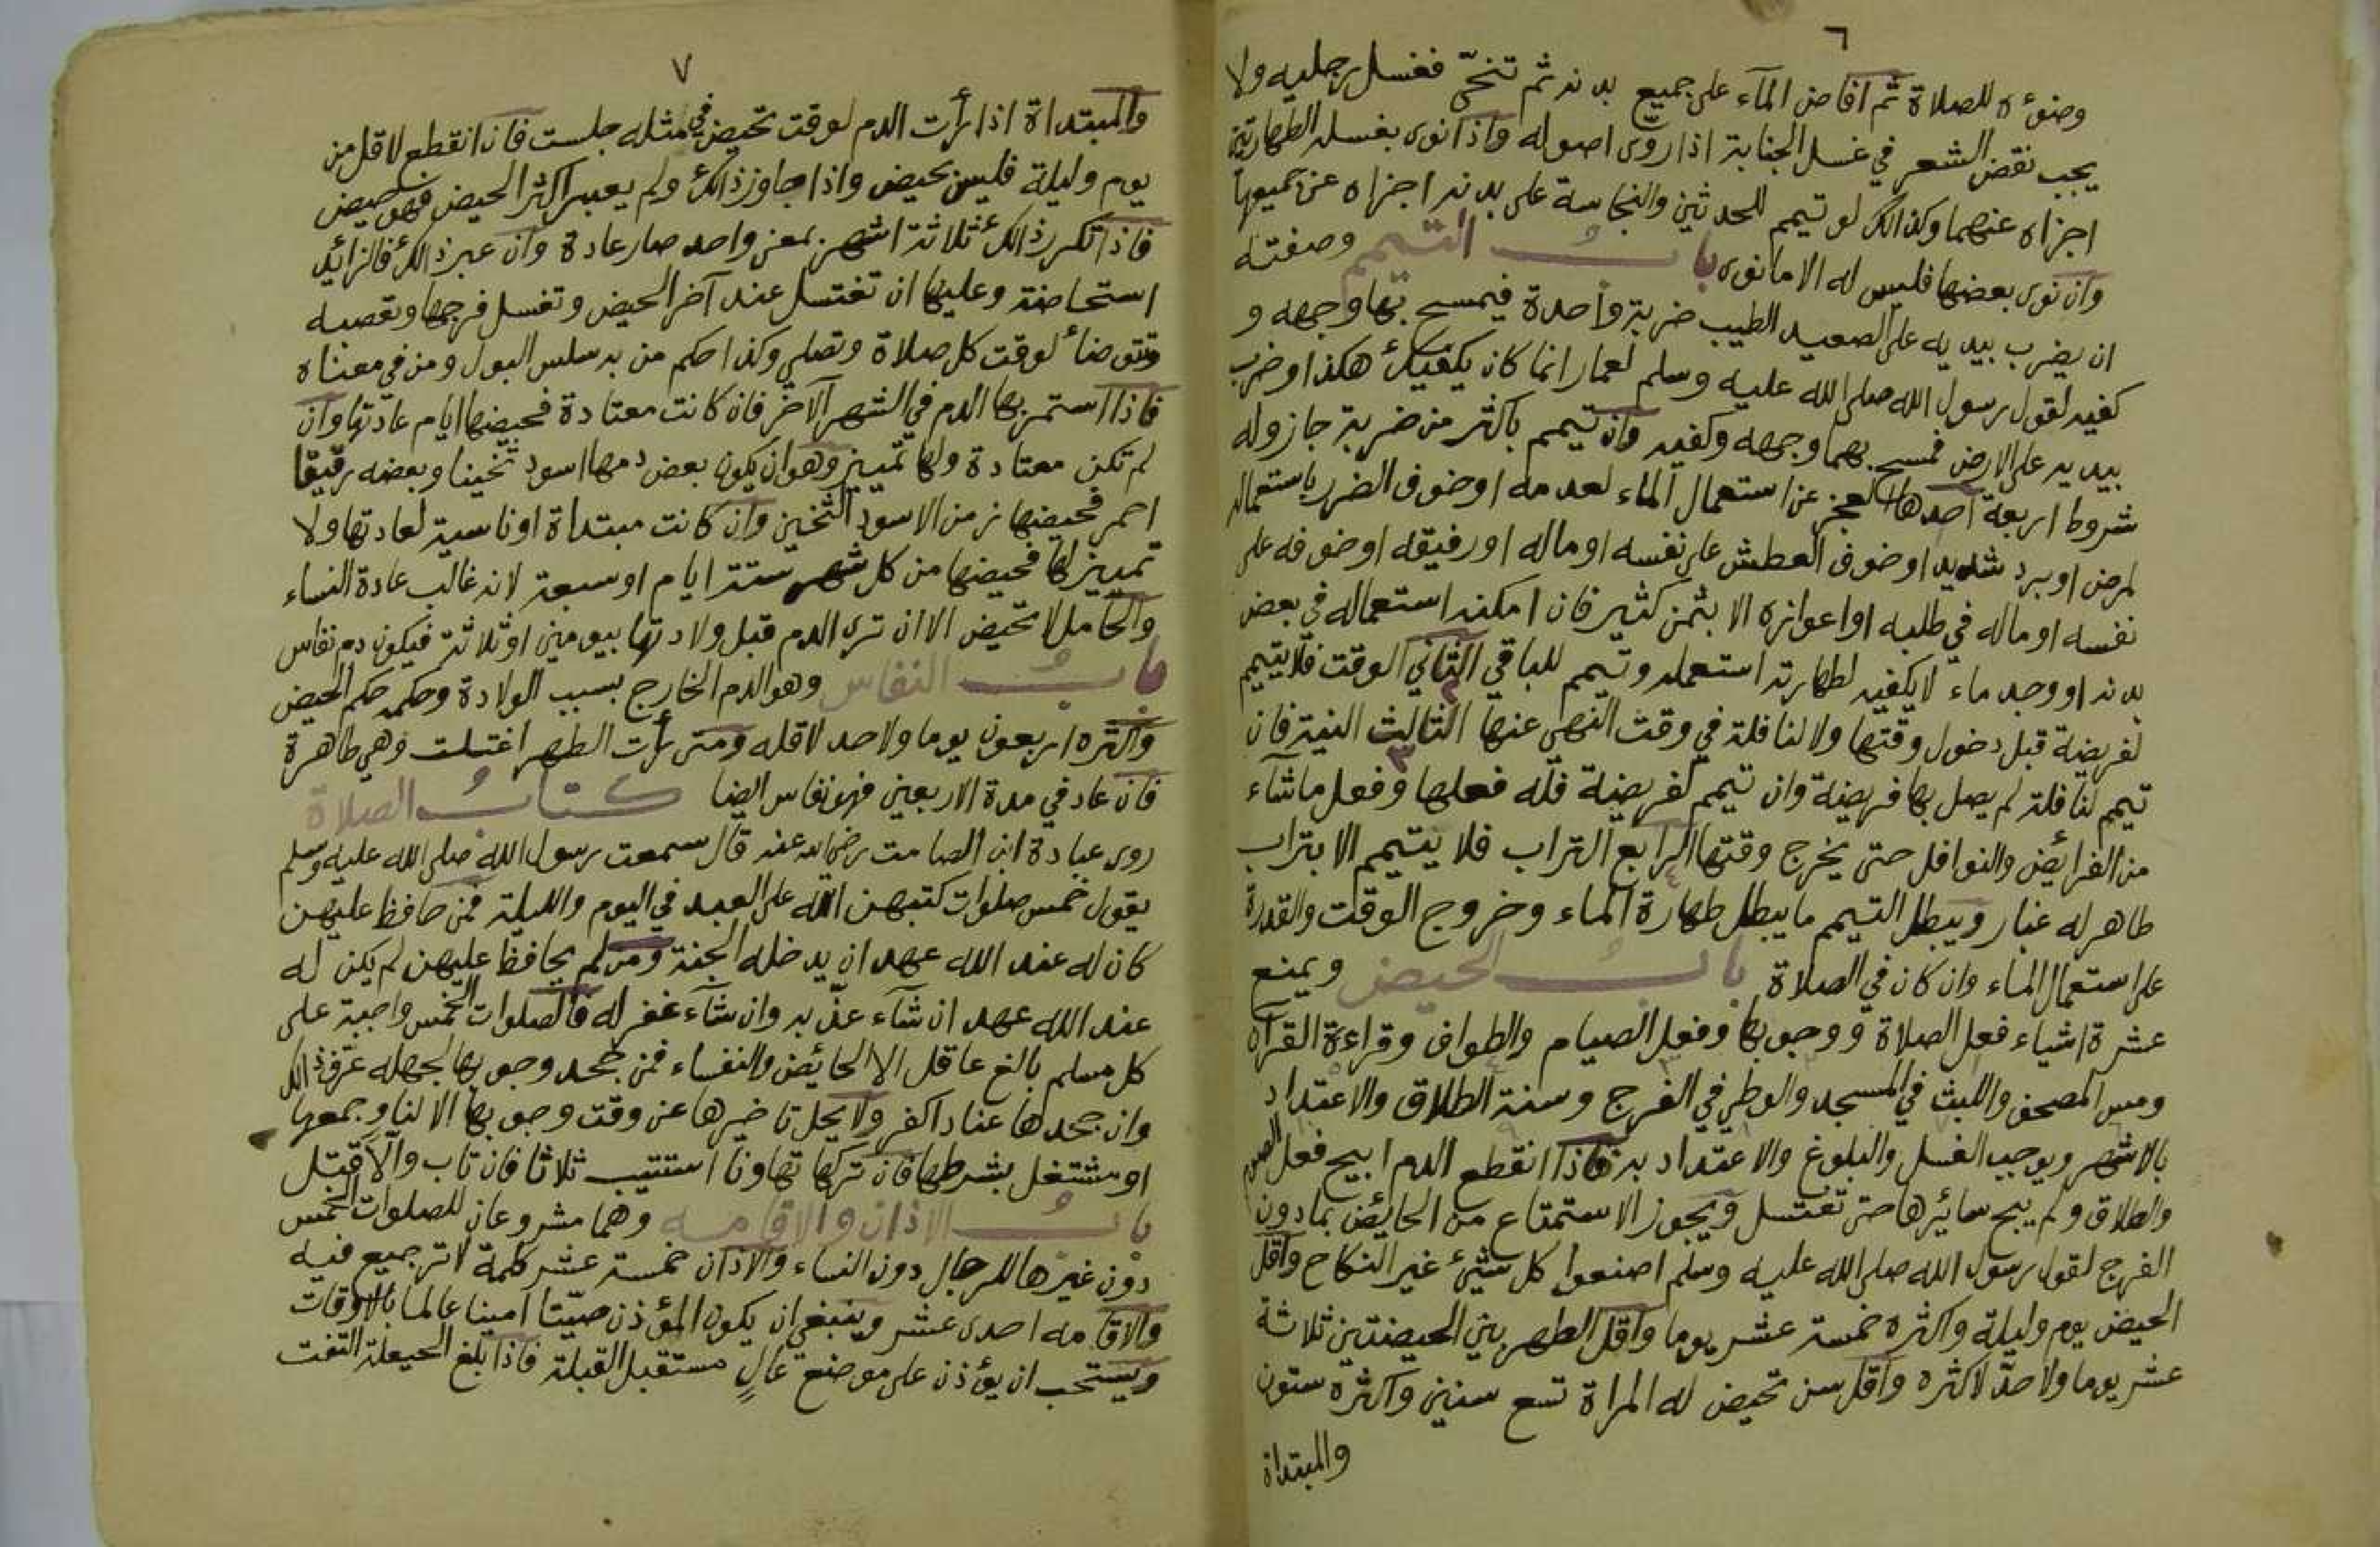 ٦
وضوءه للصلاة ثم افاض المآء على جميع بدنه ثم تنحّى فغسل رجليه ولا
يجب نقض الشعر في غسل الجنابة اذا روى اصوله واذا نوى بغسله الطهارتين
اجزاه عنهما وكذالك لو تيمم للحدثين والنجاسة على بدنه اجزاه عن جميعها
وان نوى بعضها فليس له الا ما نوى باب التيمم وصفته
ان يضرب بيديه على الصعيد الطيب ضربة واحدة فيمسح بها وجهه و
كفيه لقول رسول الله صلى الله عليه وسلم لعمار انما كان يكفيك هكذا وضرب
بيديه على الارض فمسح بهما وجهه وكفيه وان تيمم باكثر من ضربة جاز وله
شروط اربعة احدها العجز عن استعمال الماء لعدمه او خوف الضرر باستعماله
لمرض او برد شديد او خوف العطش على نفسه او ماله او رفيقه او خوفه على
نفسه او ماله في طلبه او اعوازه الا بثمن كثير فان امكنه استعماله في بعض
بدنه او وجد ماء لا يكفيه لطهارته استعمله وتيمم للباقي الثاني الوقت فلا يتيمم
٢
لفريضة قبل دخول وقتها ولا لنافلة في وقت النهي عنها الثالث النية فان
٣
تيمم لنافلة لم يصل بها فريضة وان تيمم لفريضة فله فعلها وفعل ما شآء
من الفرائض والنوافل حتى يخرج وقتها الرابع التراب فلا يتيمم الا بتراب
٤
طاهر له غبار ويبطل التيمم ما يبطل طهارة الماء وخروج الوقت والقدرة
على استعمال الماء وان كان في الصلاة باب الحيض ويمنع
عشرة اشياء فعل الصلاة ووجوبها وفعل الصيام والطواف وقراءة القرآن
ومس المصحف واللبث في المسجد والوطئ في الفرج وسنة الطلاق والاعتداد
بالاشهر ويوجب الغسل والبلوغ والاعتداد به فاذا انقطع الدم ابيح فعل الصوم
والطلاق ولم يبح سائرها حتى تغتسل ويجوز الاستمتاع من الحائض بما دون
الفرج لقول رسول الله صلى الله عليه وسلم اصنعوا كل شيئ غير النكاح واقل
الحيض يوم وليلة واكثره خمسة عشر يوما واقل الطهر بين الحيضتين ثلاثة
عشر يوما ولا حدّ لاكثره واقل سن تحيض له المراة تسع سنين واكثره ستون
والمبتداة
٧
والمبتداة اذا رأت الدم لوقت تحيض في مثله جلست فان انقطع لاقل من
يوم وليلة فليس بحيض واذا جاوز ذالك ولم يعبر اكثر الحيض فهو حيض
فاذا تكرر ذالك ثلاثة اشهر بمعنى واحد صار عادة وان عبر ذالك فالزائد
استحاضة وعليها ان تغتسل عند آخر الحيض وتغسل فرجها وتعصبه
وتتوضأ لوقت كل صلاة وتصلي وكذا حكم من به سلس البول ومن في معناه
فاذا استمر بها الدم في الشهر الآخر فان كانت معتادة فحيضها ايام عادتها وان
لم تكن معتادة ولها تمييز وهو ان يكون بعض دمها اسود ثخينا وبعضه رقيقا
احمر فحيضها زمن الاسود الثخين وان كانت مبتداة او ناسية لعادتها ولا
تمييز لها فحيضها من كل شهر ستة ايام او سبعة لانه غالب عادة النساء
والحامل لا تحيض الا ان ترى الدم قبل ولادتها بيومين او ثلاثة فيكون دم نفاس
باب النفاس وهو الدم الخارج بسبب الولادة وحكمه حكم الحيض
واكثره اربعون يوما ولا حد لاقله ومتى رأت الطهر اغتسلت وهي طاهرة
فان عاد في مدة الاربعين فهو نفاس ايضا كتاب الصلاة
روى عبادة ابن الصامت رضي الله عنه قال سمعت رسول الله صلى الله عليه وسلم
يقول خمس صلوات كتبهن الله على العبد في اليوم والليلة فمن حافظ عليهن
كان له عند الله عهد ان يدخله الجنة ومن لم يحافظ عليهن لم يكن له
عند الله عهد ان شآء عذّبه وان شآء غفر له فالصلوات الخمس واجبة على
كل مسلم بالغ عاقل الا الحائض والنفساء فمن جحد وجوبها لجهله عرف ذالك
وان جحدها عنادا كفر ولا يحل تاخيرها عن وقت وجوبها الا لناو جمعها
او مشتغل بشرطها فان تركها تهاونا استتيب ثلاثا فان تاب والا قتل
باب الاذان والاقامه وهما مشروعان للصلوات الخمس
دون غيرها للرجال دون النساء والاذان خمسة عشر كلمة لا ترجيع فيه
والاقامه احدى عشر وينبغي ان يكون المؤذن صيّتا امينا عالما بالاوقات
ويستحب ان يؤذن على موضع عالٍ مستقبل القبلة فاذا بلغ الحيعلة التفت